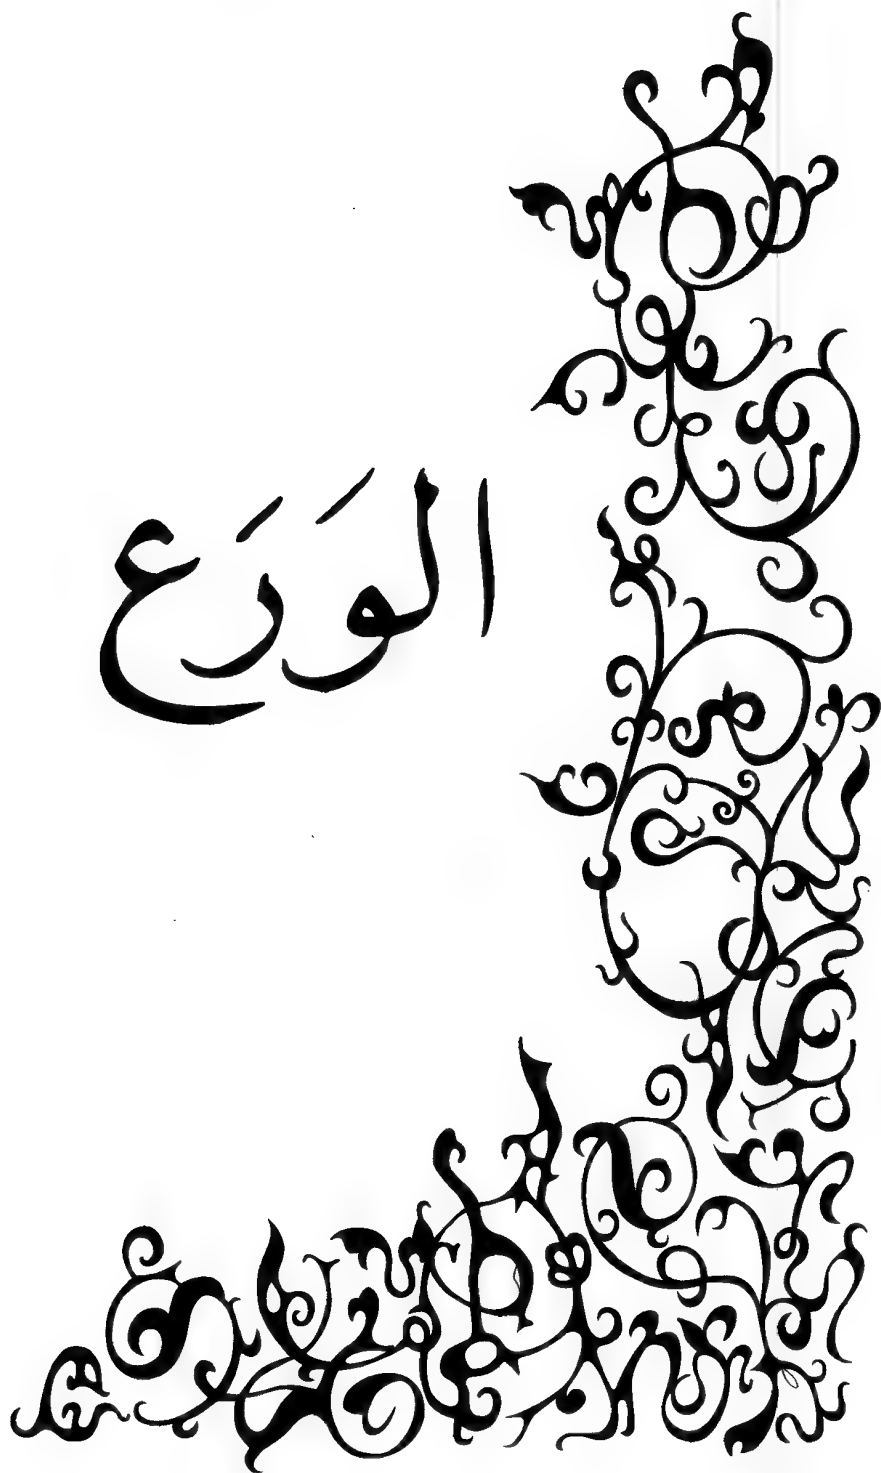 الوَرَع